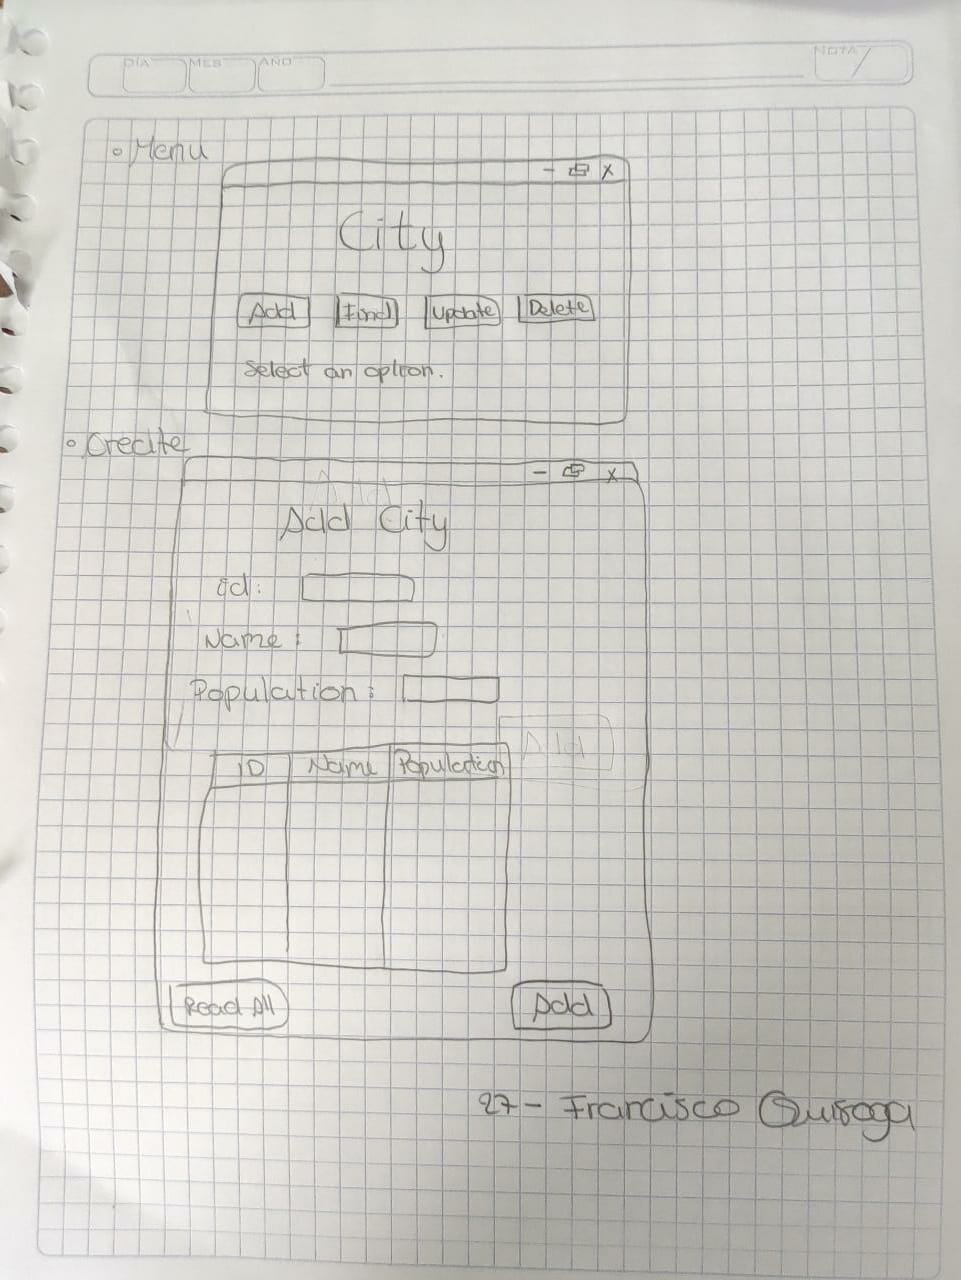 DIA MES AÑO NOTA
Menu
- X
City
Add Find Update Delete
Select an option.
Create
- X
Add City
id:
Name:
Population:
Add
ID Name Population
Read All Add
27- Francisco Quiroga